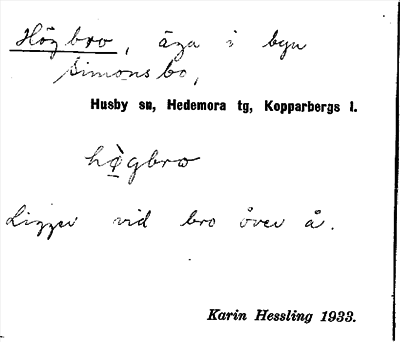 Högbro, äga i byn
Simonsbo,
Husby sn, Hedemora tg, Kopparbergs l.
Ligger vid bro över å.
Karin Hessling 1933.